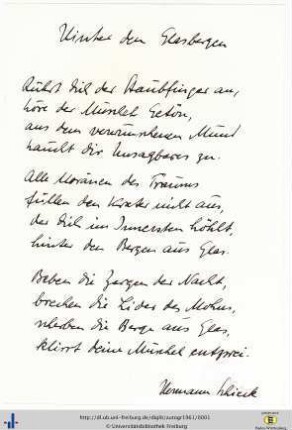 Hinter den Glasbergen
Rührt dich der Staubfinger an,
höre der Muschel Getön,
aus dem verwunschenen Mund
haucht dir Unsagbares zu.
Alle Moränen des Traums
füllen den Krater nicht aus,
der dich im Innersten höhlt,
hinter den Bergen aus Glas.
Beben die Zargen der Nacht,
brechen die Lider des Mohns,
die Berge aus Glas,
klirrt deine Muschel entzwei.
Hermann
http://dl.ub.uni-freiburg.de/diglit/autogr1961/0001
© Universitätsbibliothek Freiburg